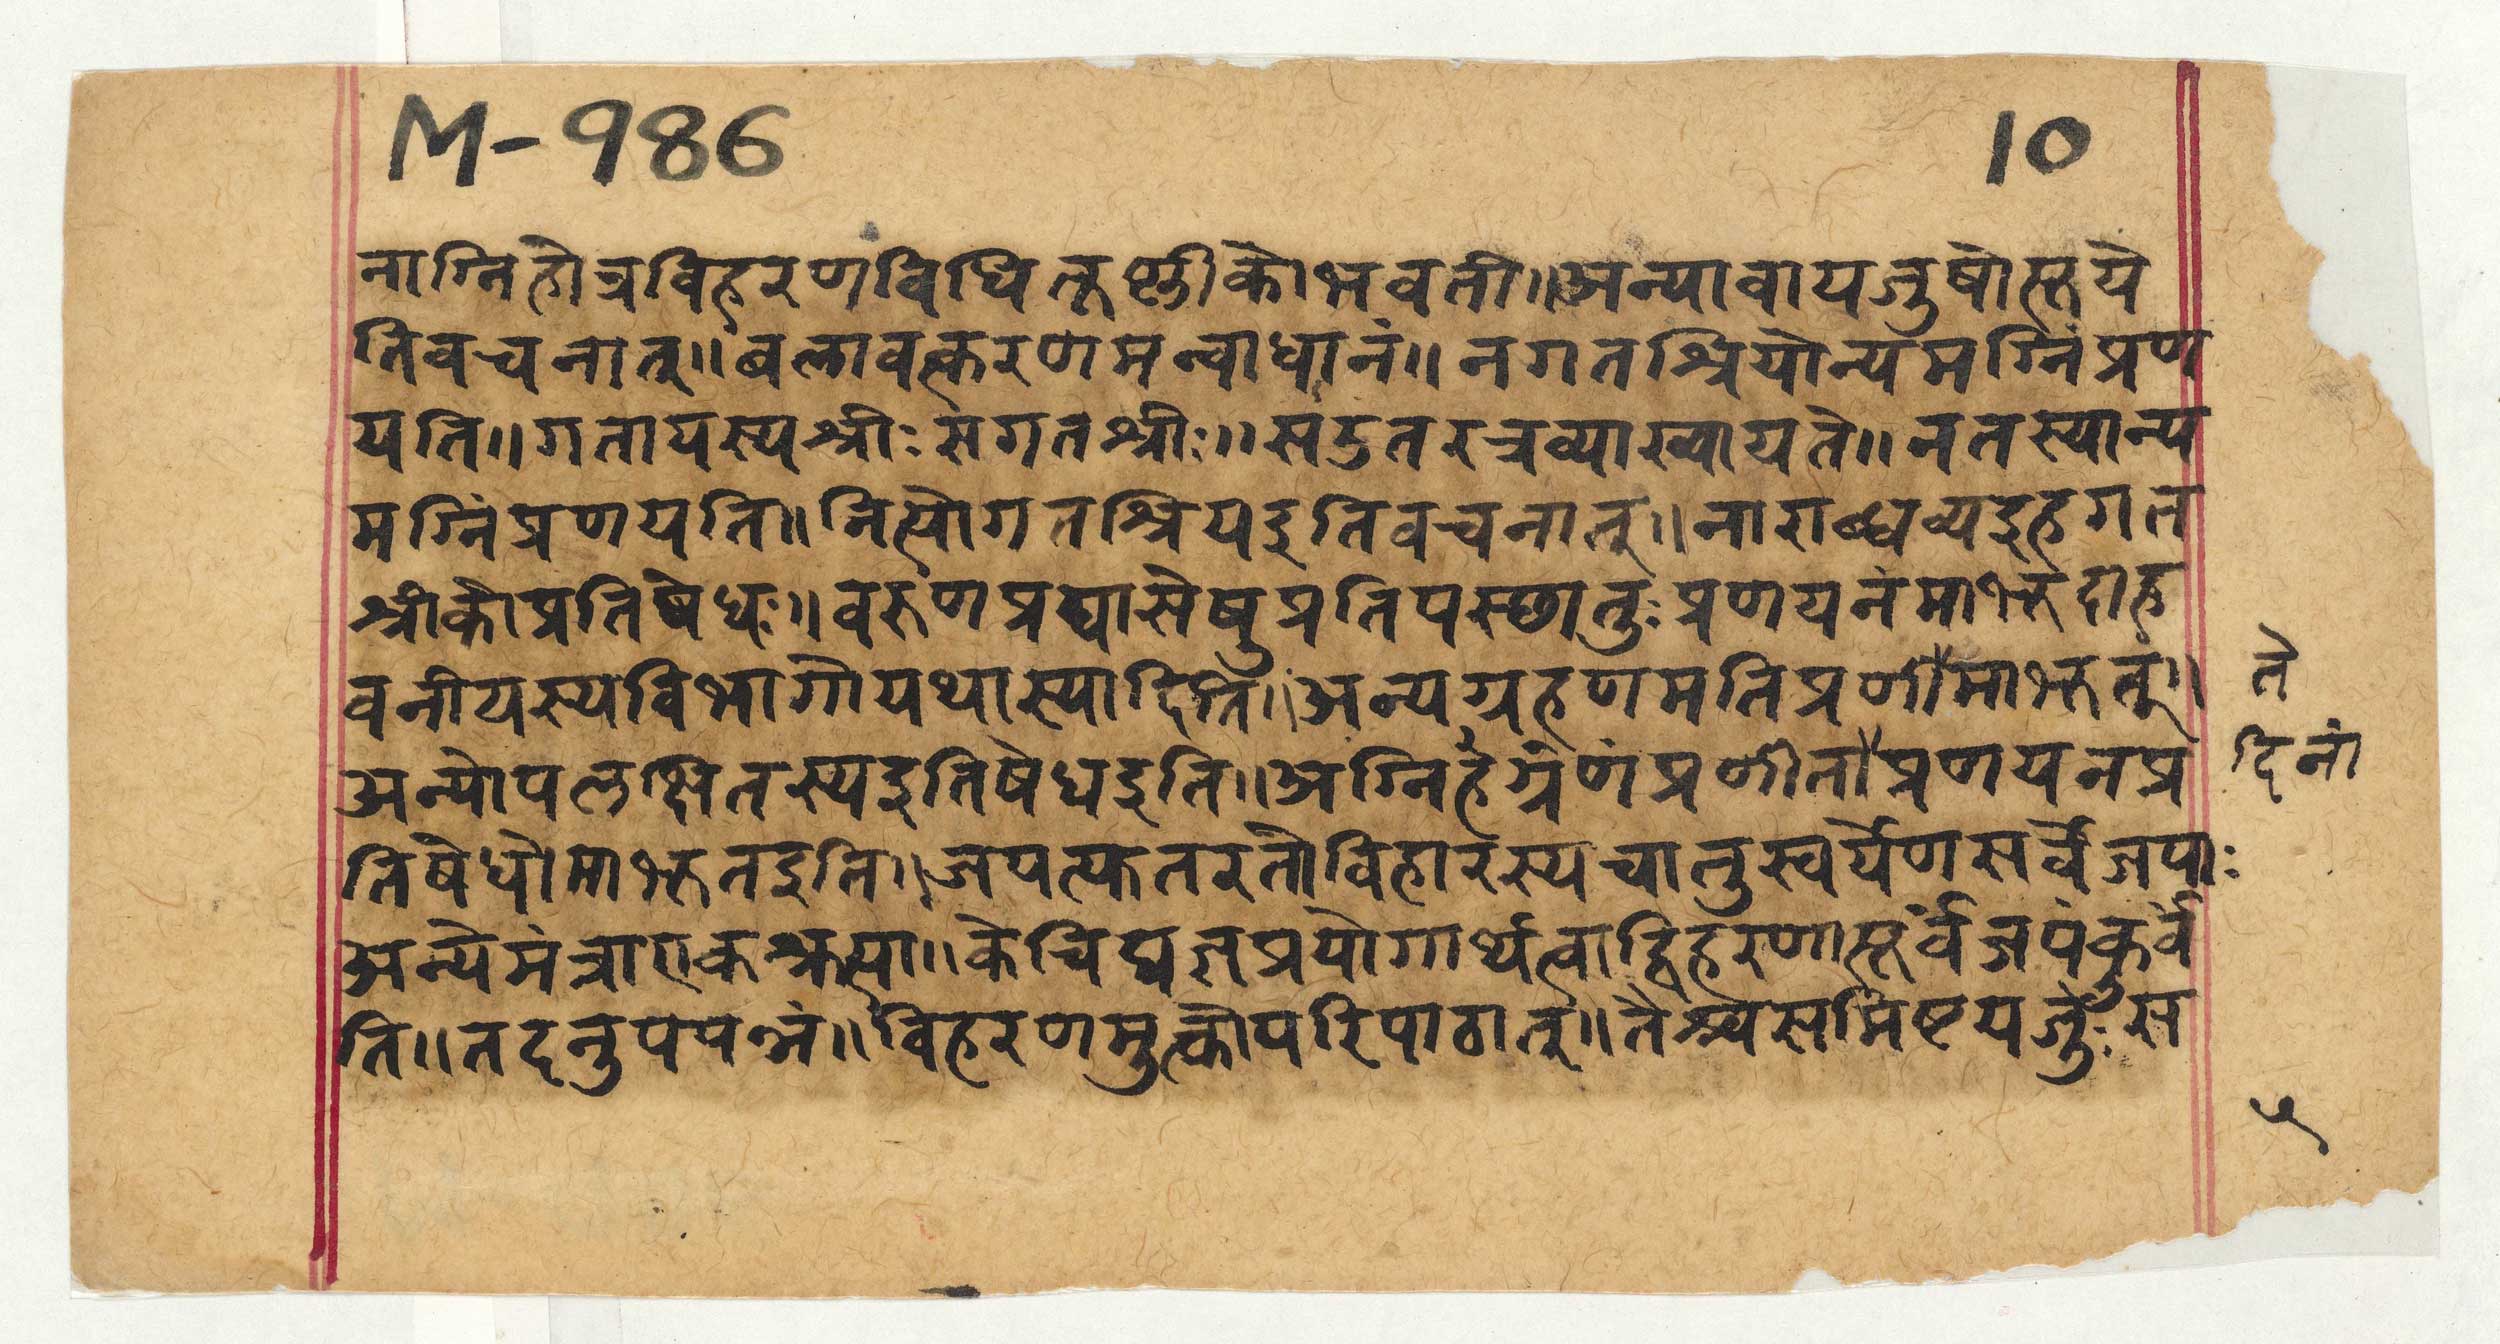 M-986
10
नाग्निहोत्रविहरणविधितूष्णीकोभवती॥अन्यावायजुषोत्सूये
तिवचनात्॥बलावत्करणमन्वाधानं॥नगतश्रियोन्यमग्निंप्रण
यति॥गतायस्यश्रीःसगतश्रीः॥सदुतरत्रव्याख्यायते॥नतस्यान्य
मग्निंप्रणयति॥नित्योगतश्रियइतिवचनात्॥नाराब्धव्यइहगत
श्रीकोप्रतिषेधः॥वरुणप्रघासेषुप्रतिपस्छातुःप्रणयनंमाभूदाह
वनीयस्यविभागोयथास्यादिति॥अन्यग्रहणमतिप्रणीमाभूत्॥
ते
अन्योपलक्षितस्यइतिषेधइति॥अग्निर्हग्रणंप्रणीताप्रणयनप्र
दिनां
तिषेधोमाभूतइति॥जपत्कतरतोविहारस्यचातुस्वर्येणसर्वेजपाः
अन्येमंत्रा केचिद्यज्ञप्रयोगार्थ्यत्वाद्विहरणात्पूर्वंजपंकुर्वं
ति॥तदनुपपन्नं॥विहरणमुत्कोपरिपाठात्॥तैश्च्यसमिष्टयजुःस
५